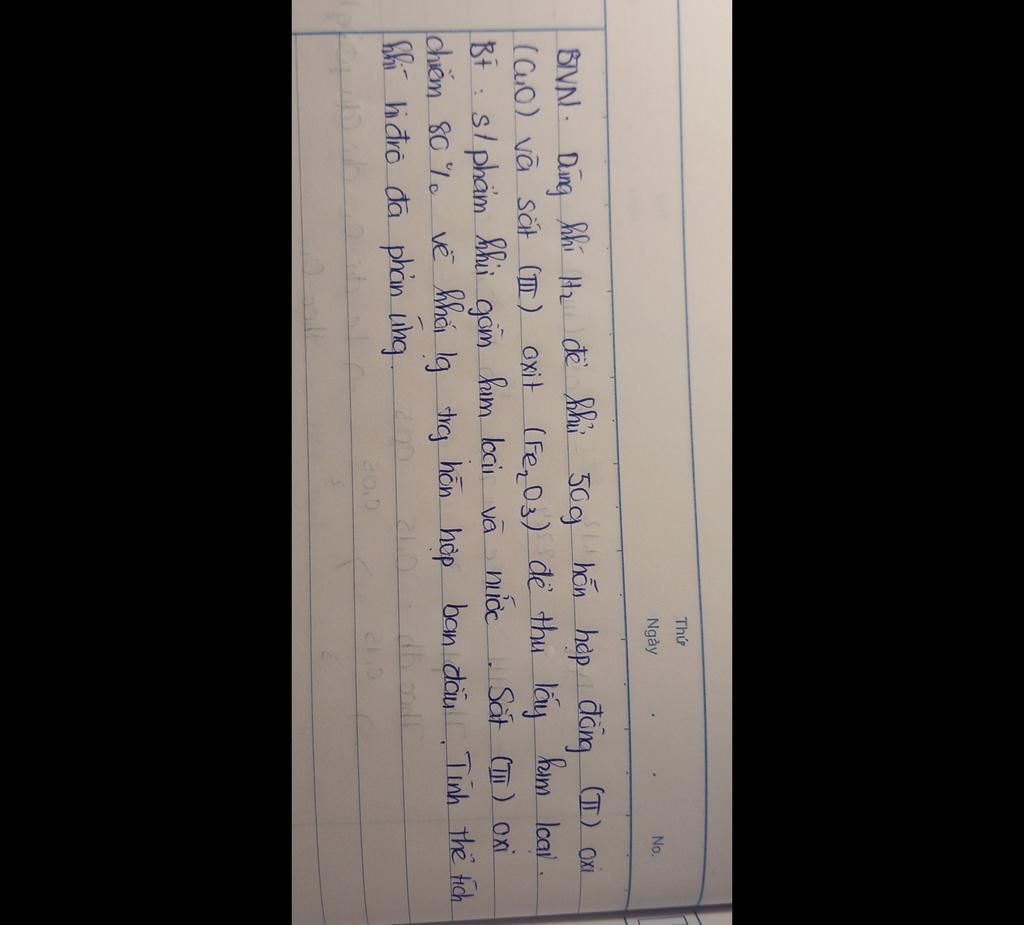 Thứ
Ngày . . No.
BTVN. Dùng khí H₂ để khử 50g hỗn hợp đồng (II) oxi
(CuO) và sắt (III) oxit (Fe₂O₃) để thu lấy kim loại.
Bt : s/phẩm khử gồm kim loại và nước. Sắt (III) oxi
chiếm 80% về khối lg trg hỗn hợp ban đầu. Tính thể tích
khí hiđrô đã phản ứng.